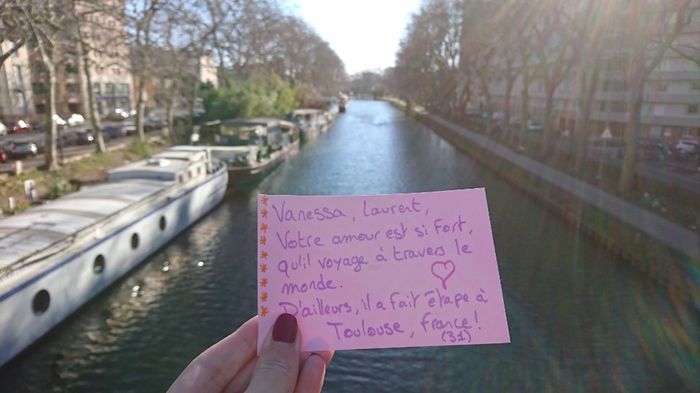 Vanessa, Laurent,
Votre amour est si fort,
qu'il voyage à travers le
monde.
D'ailleurs, il a fait étape à
Toulouse, france!
(31)